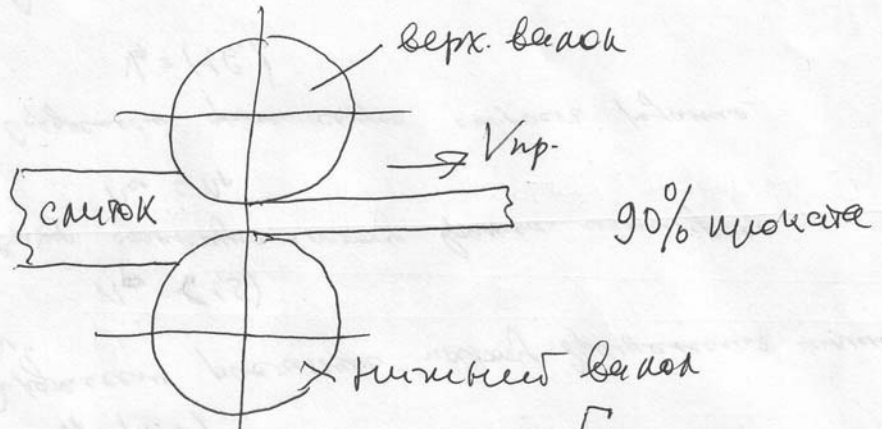 верх. валок
Vпр.
слиток
90% проката
нижний валок